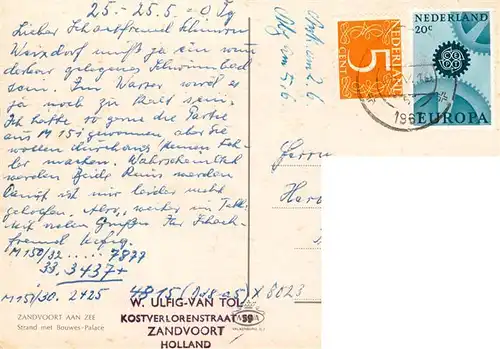 25.-25.5.-0 Tg
Lieber Schachfreund
Weixdorf muß ja ein wun
derbar gelegenes Schwimmbad
sein. Im Wasser wird es
ja noch zu kalt sein.
Ich hatte so gerne die Partie
aus M 151 gewonnen, aber Sie
wollen durchaus keinen Feh-
ler machen. Wahrscheinlich
werden beide Remis werden
Damit ist mir leider nicht
geholfen. Also, weiter im Takt
mit vielen Grüßen Ihr Schach-
freund Ulfig.
M150/32 ..... 7877
33. 3437+
M151/30. 2425 4815 X 8023
ZANDVOORT AAN ZEE
Strand met Bouwes-Palace
W. ULFIG-VAN TOL
KOSTVERLORENSTRAAT 59
ZANDVOORT
HOLLAND
5
CENT
NEDERLAND
NEDERLAND
20c
EUROPA
196
Herrn